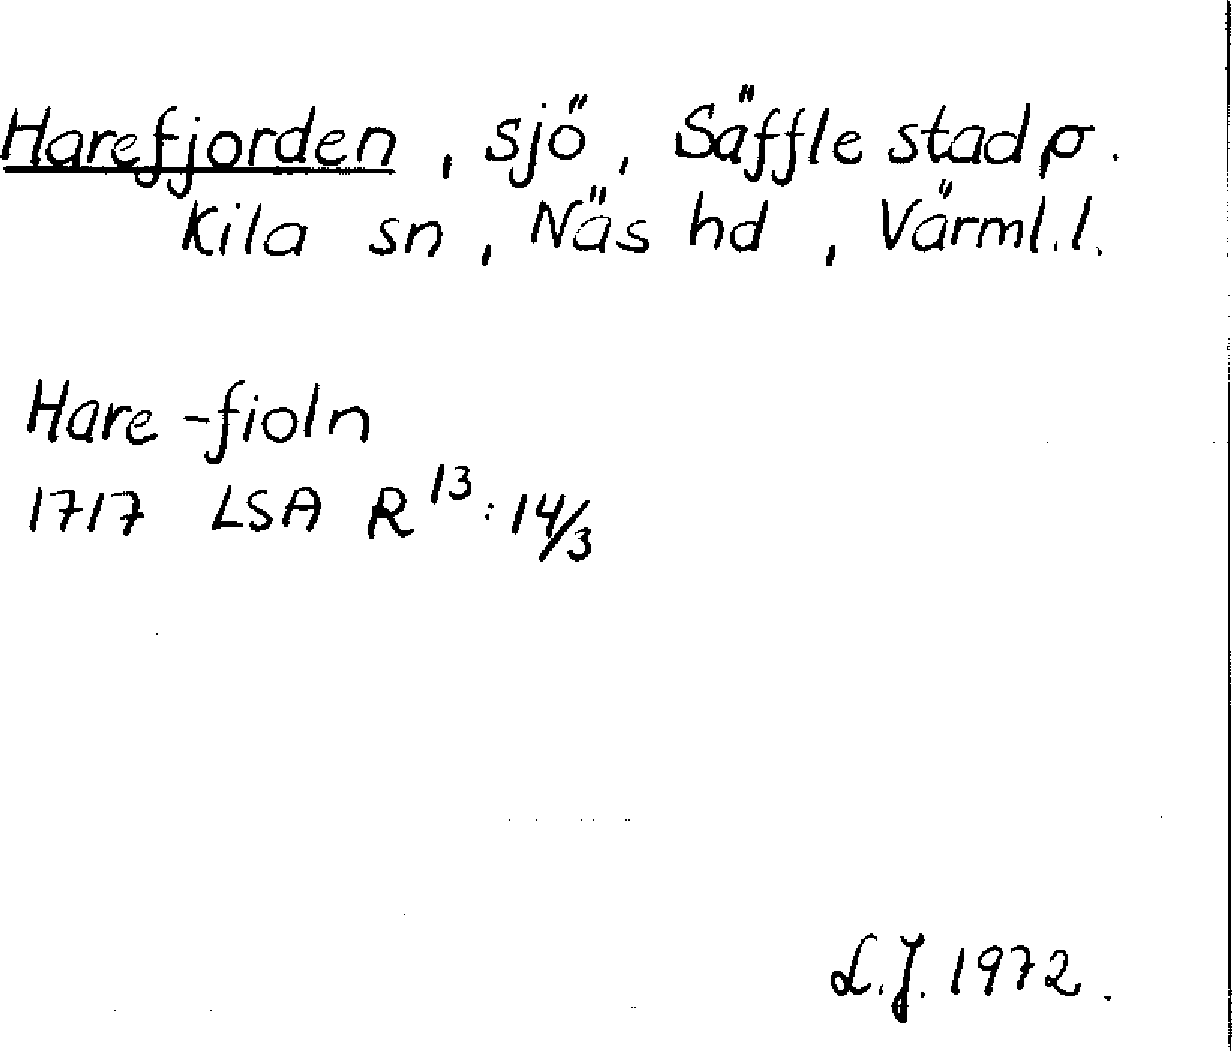 Harefjorden, sjö, Säffle stad o.
Kila sn, Näs hd, Värml. l.
Hare-fioln
1717 LSA R 13:14/3
L.J. 1972.